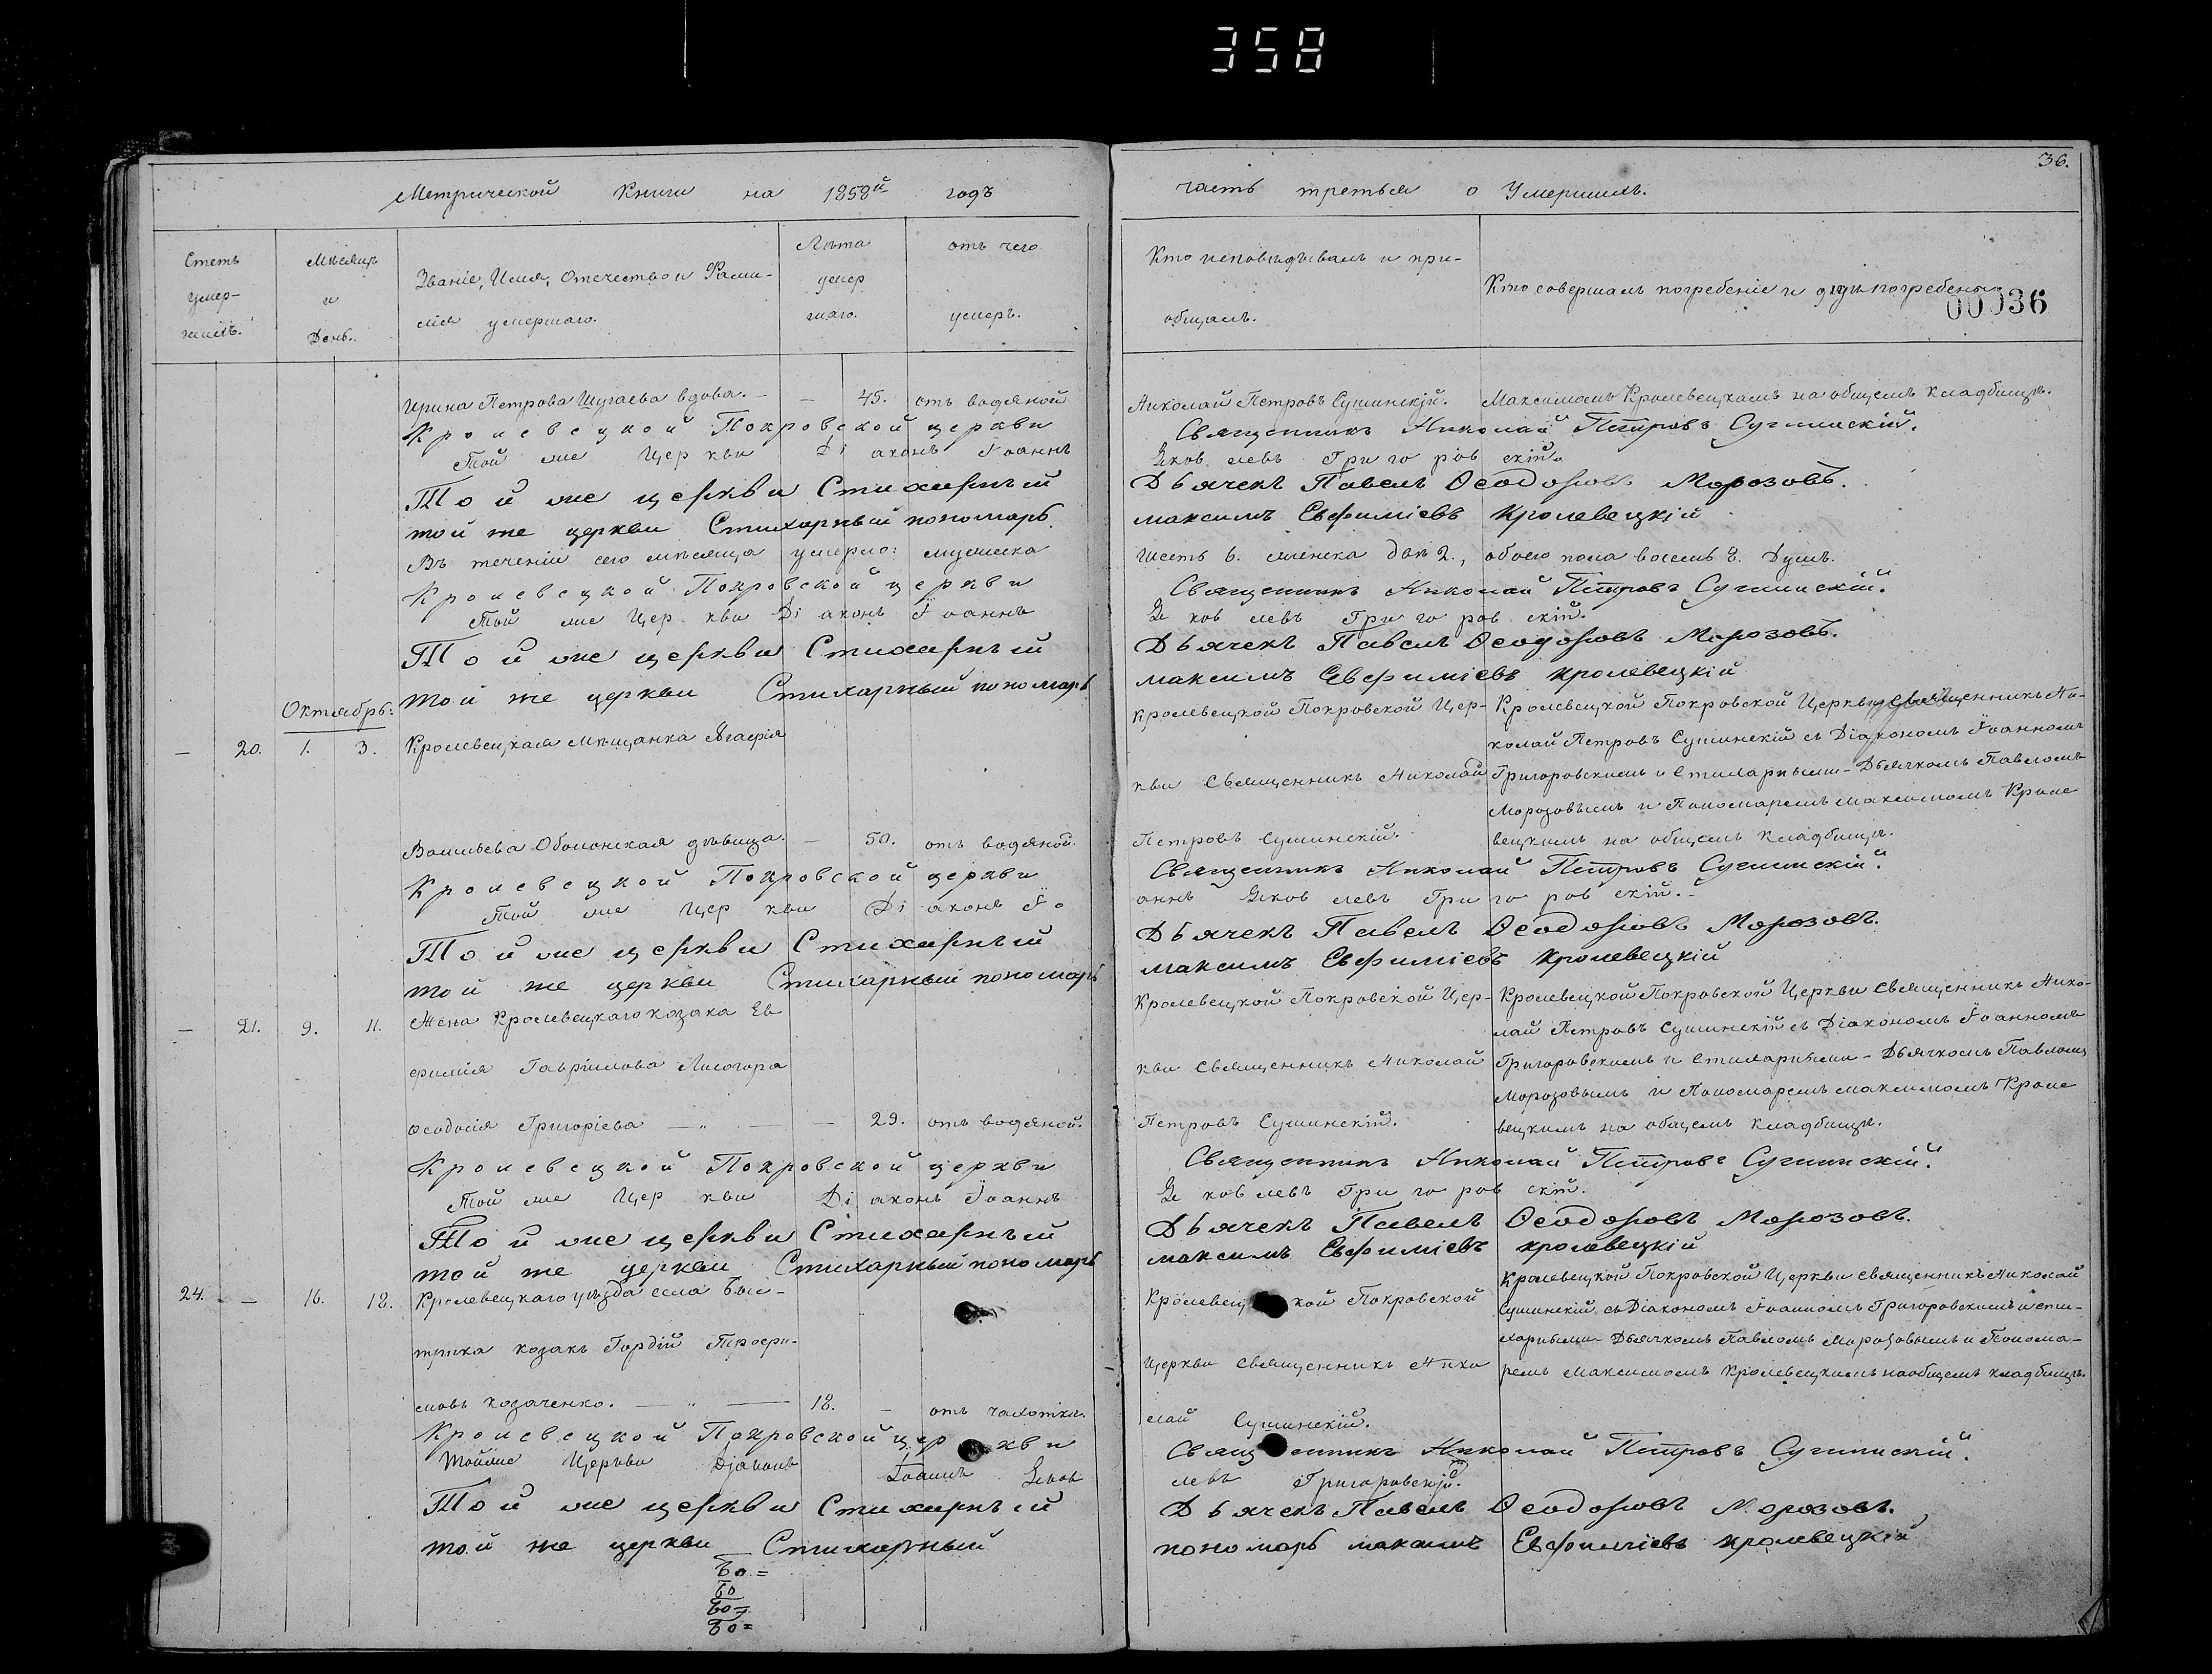 358
36.
Метрической Книги на 1858й годъ
часть третья о Умершихъ.
Счетъ умер-шихъ.
Мѣсяцъ и День.
Званіе, Имя, Отечество и Фами-
лія умершаго.
Лѣта умер шаго.
отъ чего умеръ.
Кто исповѣдывалъ и прі-
общалъ.
Кто совершалъ погребеніе и гдѣ погребены.
00036
Ирина Петрова Шугаева вдова. — — 45. отъ водяной
Николай Петровъ Сушинскій. Максимомъ Кролевецкимъ на общемъ кладбищѣ.
Кролевецкой Покровской церкви Священникъ Николай Петровъ Сушинскій.
Той же Церкви Діаконъ Іоаннъ Яковлевъ Григоровскій.
Той же церкви Стихарный Дьячекъ Павелъ Ѳеодоровъ Морозовъ.
той же церкви Стихарный пономарь максимъ Евфиміевъ Кролевецкій
Въ теченіи сего мѣсяца умерло: мужеска шесть 6. женска двѣ 2., обоего пола восемь 8. Душъ.
Кролевецкой Покровской церкви Священникъ Николай Петровъ Сушинскій.
Той же Церкви Діаконъ Іоаннъ Яковлевъ Григоровскій.
Той же церкви Стихарный Дьячекъ Павелъ Ѳеодоровъ Морозовъ.
той же церкви Стихарный пономарь максимъ Евфиміевъ кролевецкій
Октябрь:
— 20. 1. 3. Кролевецкая мѣщанка Агафія
Васильева Оболонская дѣвица. — 50. отъ водяной.
Кролевецкой Покровской Цер-
кви Священникъ Николай
Петровъ Сушинскій.
Кролевецкой Покровской Церкви Священникъ Ни-
колай Петровъ Сушинскій съ Діакономъ Іоанномъ
Григоровскимъ и Стихарными - Дьячкомъ Павломъ
Морозовымъ и Пономаремъ максимомъ Кроле
вецкимъ на общемъ кладбищѣ.
Кролевецкой Покровской церкви Священникъ Николай Петровъ Сушинскій.
Той же Церкви Діаконъ Іоаннъ Яковлевъ Григоровскій.
Той же церкви Стихарный Дьячекъ Павелъ Ѳеодоровъ Морозовъ.
той же церкви Стихарный пономарь максимъ Евфиміевъ кролевецкій
— 21. 9. 11. Жена Кролевецкаго козака Ев
фимія Гавріилова Лисогора
Ѳеодосія Григоріева — „ — — 29. отъ водяной.
Кролевецкой Покровской Цер-
кви Священникъ Николай
Петровъ Сушинскій.
Кролевецкой Покровской Церкви Священникъ Нико-
лай Петровъ Сушинскій съ Діакономъ Іоанномъ
Григоровскимъ и Стихарными - Дьячкомъ Павломъ
Морозовымъ и Пономаремъ максимомъ Кроле
вецкимъ на общемъ кладбищѣ.
Кролевецкой Покровской церкви Священникъ Николай Петровъ Сушинскій.
Той же Церкви Діаконъ Іоаннъ Яковлевъ Григоровскій.
Той же церкви Стихарный Дьячекъ Павелъ Ѳеодоровъ Морозовъ.
той же церкви Стихарный пономарь максимъ Евфиміевъ кролевецкій
24. — 16. 18. Кролевецкаго уѣзда села Бы-
трика козакъ Гордій Трофи-
мовъ Козаченко. — „ — 18. — отъ чахотки.
Кролевецкой Покровской
Церкви Священникъ Нико
лай Сушинскій.
Кролевецкой Покровской Церкви Священникъ Николай
Сушинскій съ Діакономъ Іоанномъ Григоровскимъ и сти-
харными - Дьячкомъ Павломъ Морозовымъ и Понома-
ремъ Максимомъ Кролевецкимъ на общемъ кладбищѣ.
Кролевецкой Покровской церкви Священникъ Николай Петровъ Сушинскій.
Тойже Церкви Діаконъ Іоаннъ Яковлевъ Григоровскій.
Той же церкви Стихарный Дьячекъ Павелъ Ѳеодоровъ Морозовъ.
той же церкви Стихарный пономарь максимъ Евфиміевъ кролевецкій